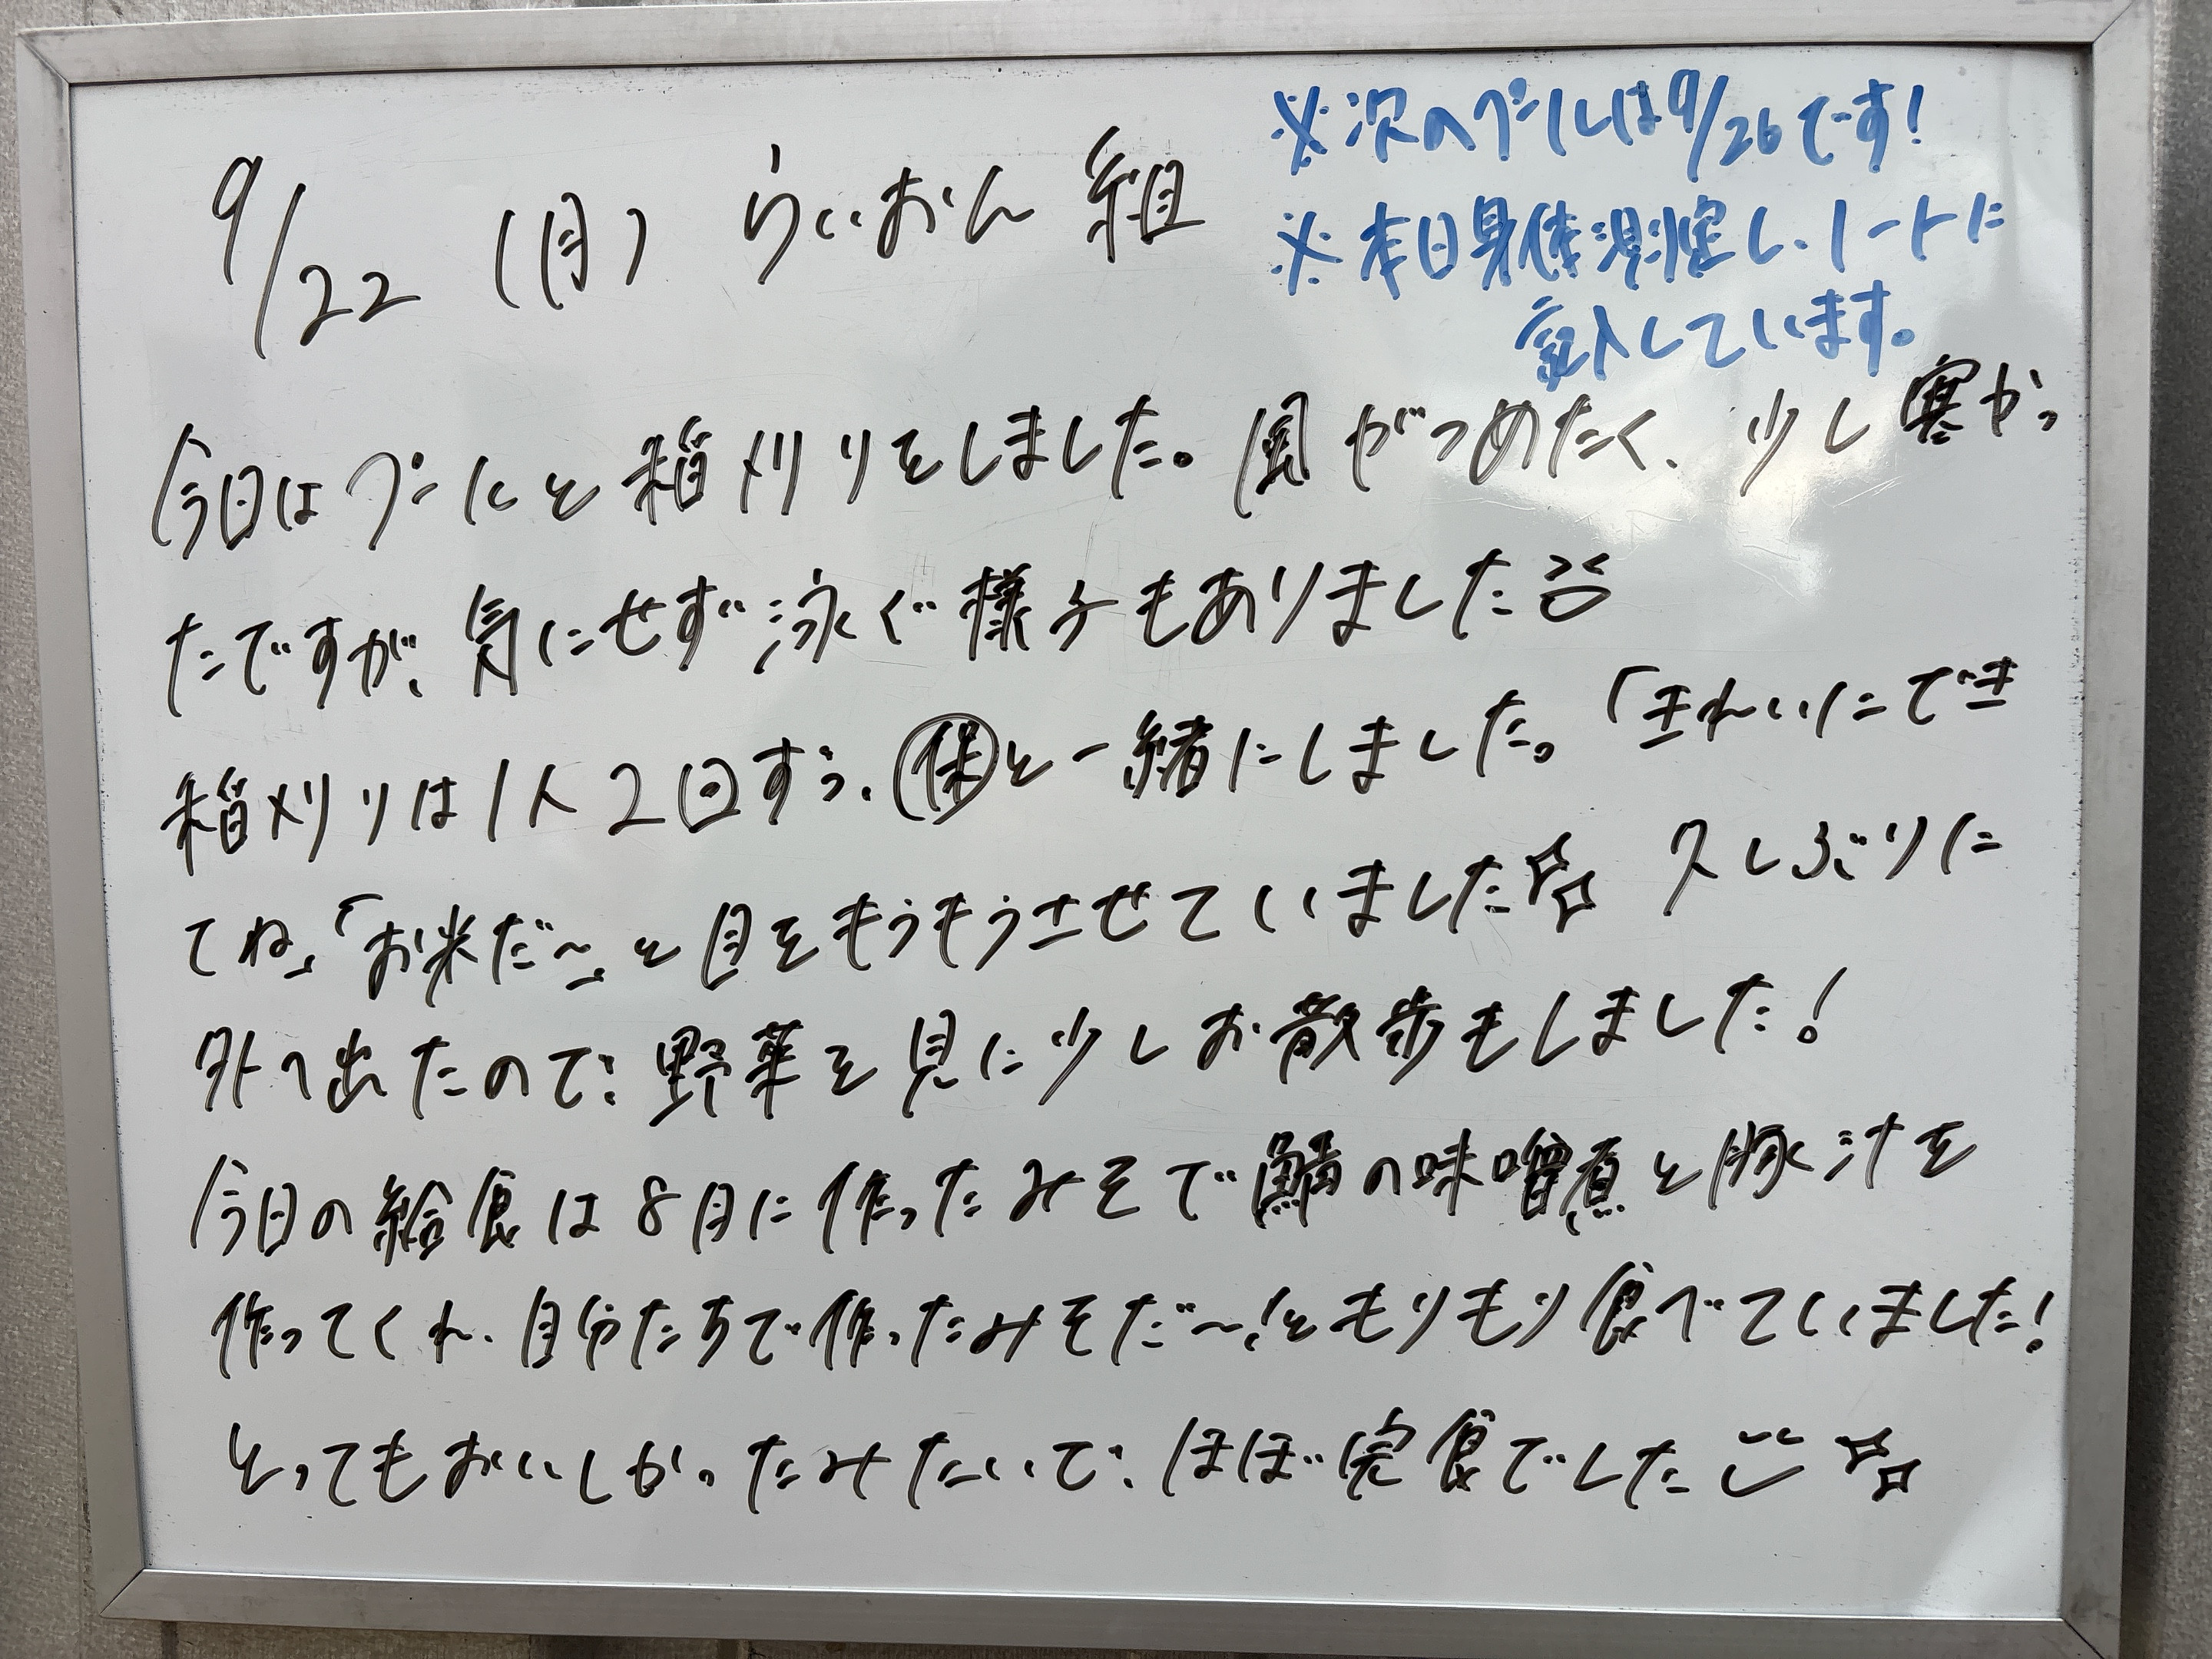 9/22 (月) らいおん 組
※次のプールは9/26です!
※本日身体測定し、ノートに
記入しています。
今日はプールと稲刈りをしました。風がつめたく、少し寒かっ
たですが、気にせず泳ぐ様子もありました
稲刈りは1人2回ずつ、保と一緒にしました。「きれいにでき
てね」「お米だ〜」と目をキラキラさせていました 久しぶりに
外へ出たので、野菜を見に少しお散歩もしました!
今日の給食は8月に作ったみそで鯖の味噌煮と豚汁を
作ってくれ、自分たちで作ったみそだ〜!ともりもり食べていました!
とってもおいしかったみたいで、ほぼ完食でした